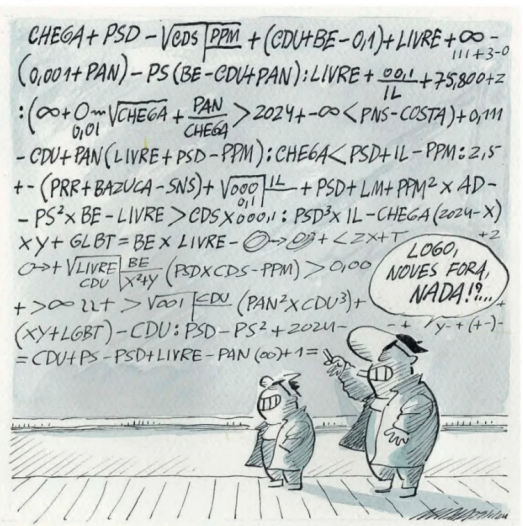 CHEGA + PSD - √CDS PPM + (CDU+BE-0,1)+LIVRE+∞-
111+3-0
(0,001+PAN)-PS(BE-CDU+PAN):LIVRE+ 00,1/IL +75,800+2
:(∞+0m√CHEGA + PAN/CHEGA > 2024+-∞<PNS-COSTA)+0,111
0,01
-CDU+PAN(LIVRE+PSD-PPM):CHEGA<PSD+IL-PPM:2,5
+-(PRR+BAZUCA-SNS)+√000 IL +PSD+LM+PPM²×AD-
0,1
-PS²×BE-LIVRE>CDS×000,1:PSD³×IL-CHEGA(2024-X)
XY+GLBT=BE×LIVRE- → + <ZX+T +2
→+√LIVRE/CDU BE/X²+Y (PSDXCDS-PPM)>0,00
+>∞ 22+>√001 CDU (PAN²XCDU³)+
(XY+LGBT)-CDU:PSD-PS²+2024- -+ y-+(+-)-
=CDU+PS-PSD+LIVRE-PAN(∞)+1=
LOGO,
NOVES FORA,
NADA!?...